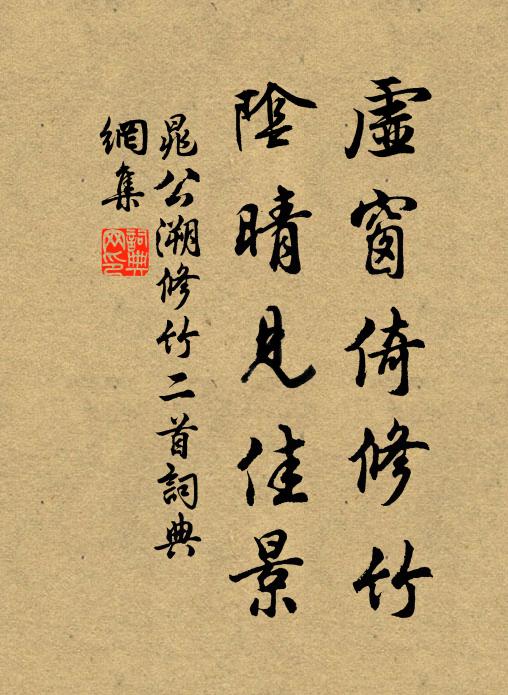 虛窗倚修竹
陰晴見佳景
晁公溯修竹二首詞典
網集
詞典
网印